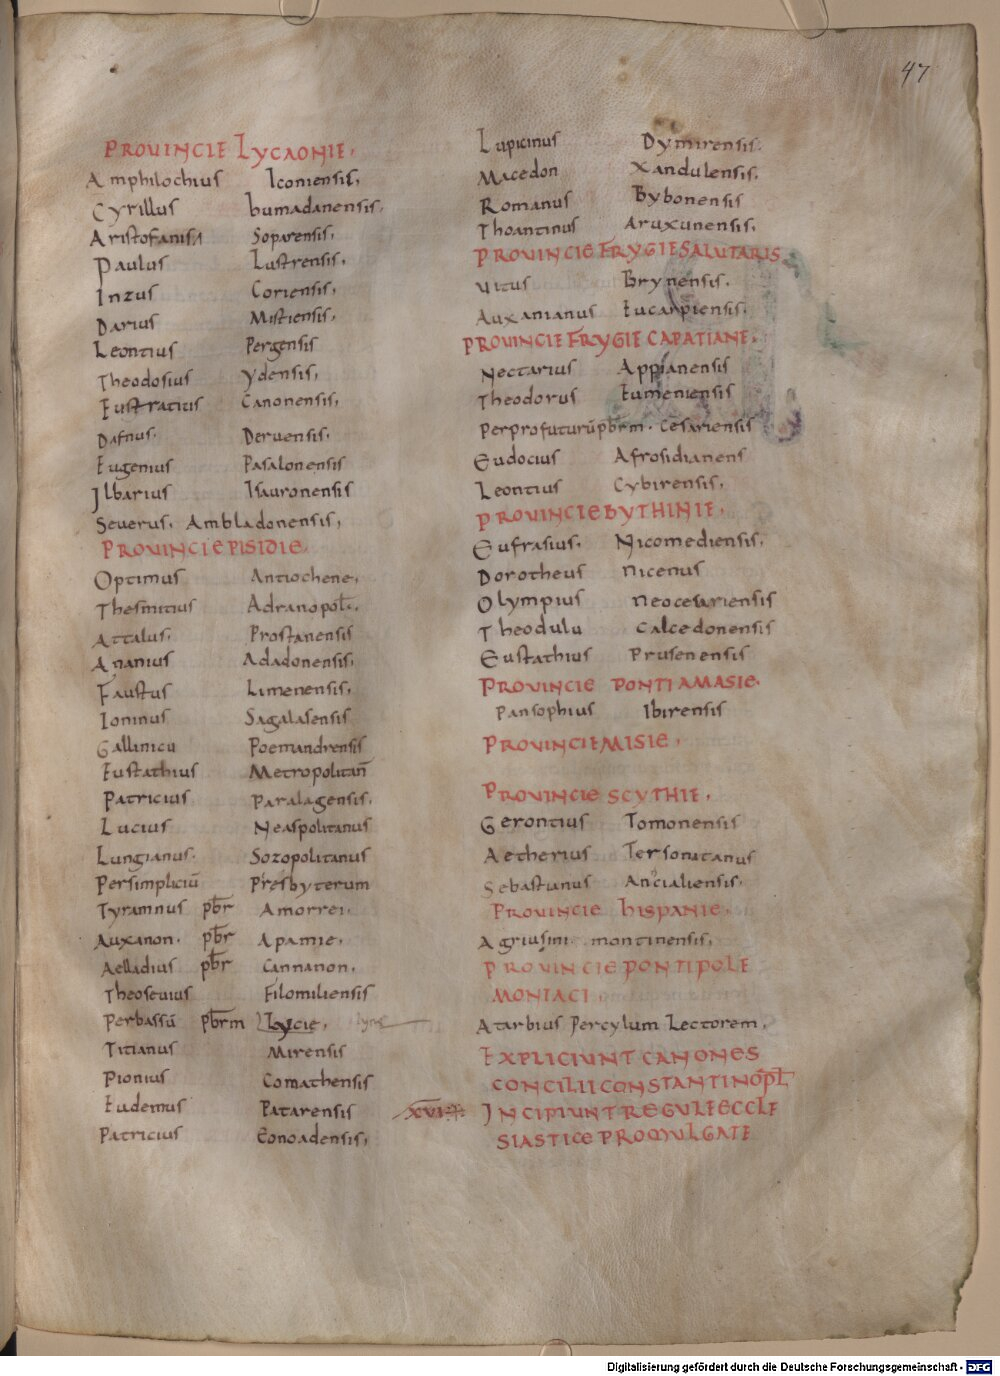 47
PROVINCIE LYCAONIE.
Amphilochius Iconiensis,
Cyrillus humadanensis.
Aristofanis Soparensis.
Paulus Lustrensis.
Inzus Coriensis.
Darius Mistiensis.
Leontius Pergensis
Theodosius Ydensis,
Eustratius Canonensis,
Dafnus. Deruensis.
Eugenius Pasalonensis
Ilbarius Isauronensis
Seuerus. Ambladonensis,
PROVINCIE PISIDIE.
Optimus Antiochene,
Thesmitius Adranopol̄.
Attalus. Prostanensis
Ananius Adadonensis.
Faustus Limenensis.
Ioninus Sagalasensis
Gallinicu Poemandrensis
Eustathius Metropolitan̄
Patricius Paralagensis.
Lucius Neaspolitanus
Lungianus. Sozopolitanus
Persimpliciū Presbyterum
Tyramnus pb̄r Amorrei.
Auxanon. pb̄r Apamie.
Aelladius pb̄r Cannanon.
Theoseuius Filomiliensis
Perbassū pb̄rm Lycie.
Titianus Mirensis
Pionius Comathensis
Eudemus Patarensis
Patricius Eonoadensis,
Lupicinus Dymirensis.
Macedon Xandulensis.
Romanus Bybonensis
Thoantinus Aruxunensis.
PROVINCIE FRYGIE SALUTARIS
Vitus Brynensis.
Auxanianus Eucarpiensis.
PROVINCIE FRYGIE CAPATIANE.
Nectarius Appianensis
Theodorus Eumeniensis
Perprofuturū pb̄rm. Cesariensis
Eudocius Afrosidianens
Leontius Cybirensis.
PROVINCIE BYTHINIE.
Eufrasius. Nicomediensis.
Dorotheus Nicenus
Olympius Neocesariensis
Theodulu Calcedonensis
Eustathius Prusenensis
PROVINCIE PONTI AMASIE.
Pansophius Ibirensis
PROVINCIE MISIE.
PROVINCIE SCYTHIE.
Gerontius Tomonensis
Aetherius Tersonitanus
Sebastianus Ancialiensis.
PROVINCIE HISPANIE.
Agriusini. montinensis.
PROVINCIE PONTI POLE
MONIACI.
Atarbius Percylum Lectorem.
EXPLICIUNT CANONES
CONCILII CONSTANTINOPL̄
XVI INCIPIUNT REGULE ECCLE
SIASTICE PROMULGATE
Digitalisierung gefördert durch die Deutsche Forschungsgemeinschaft - DFG